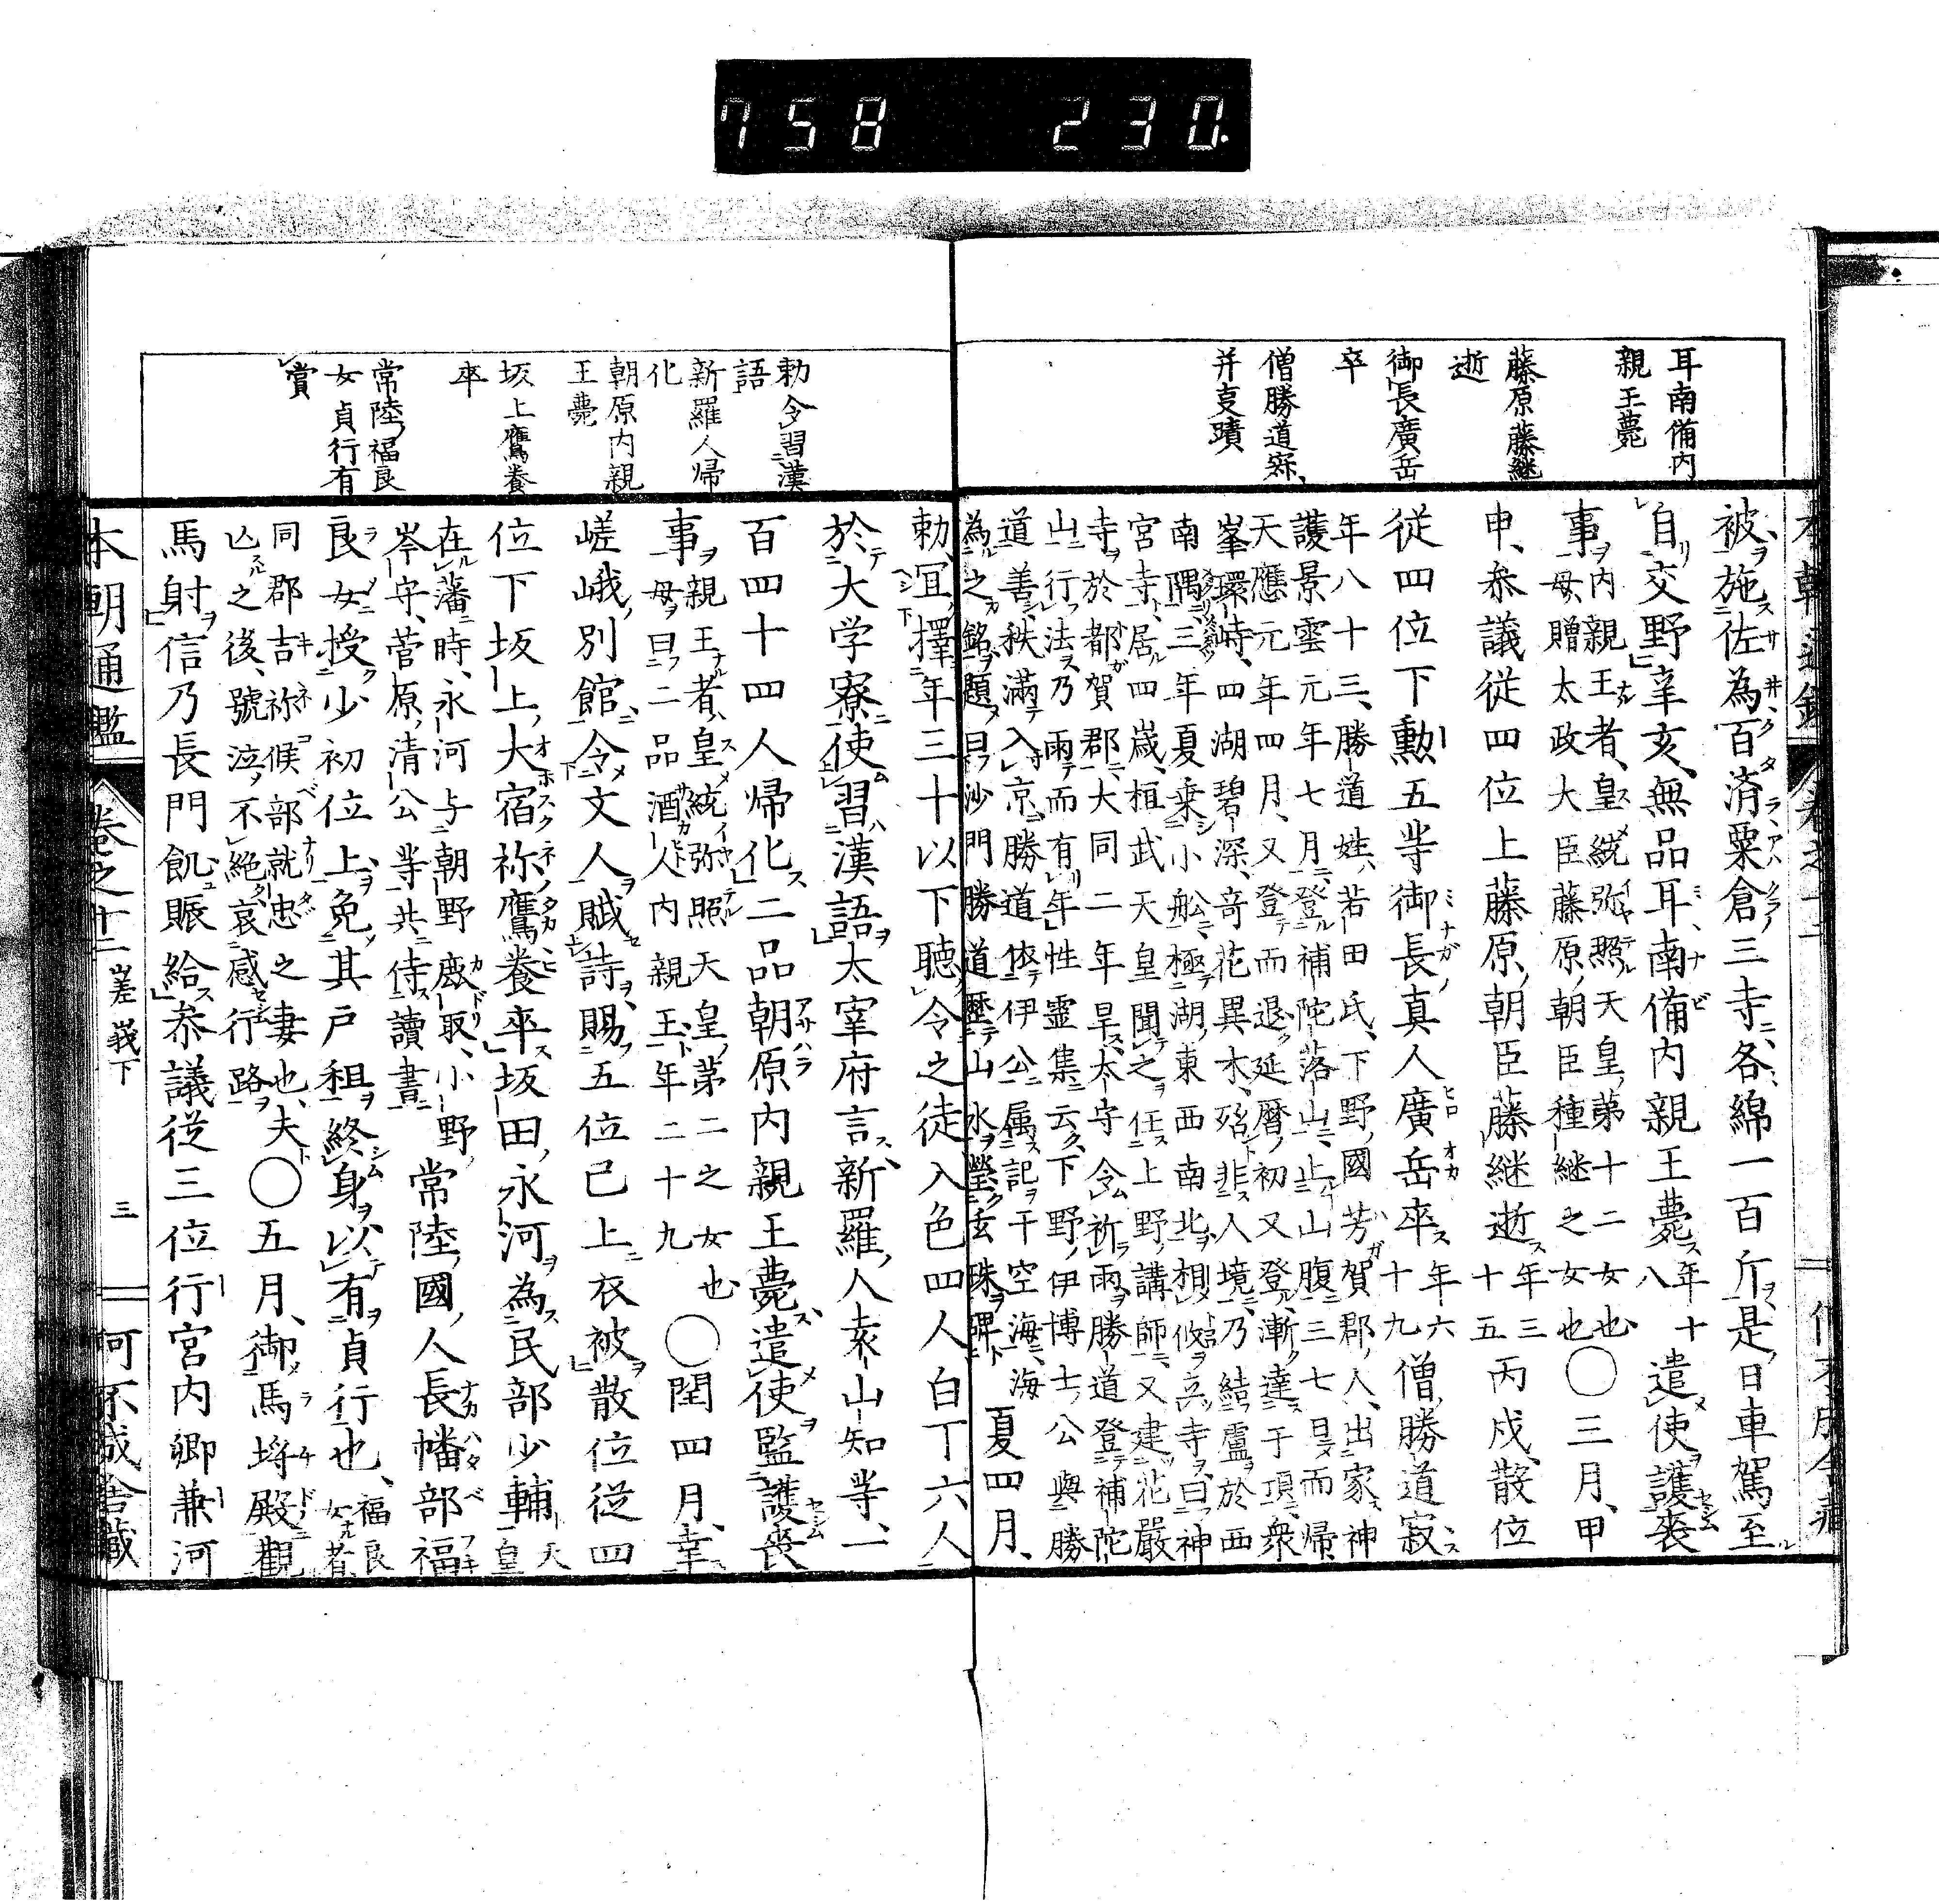 758 230.
耳南備内
親王薨
藤原藤継
逝
御長廣岳
卒
僧勝道寂、
并叓蹟
被施佐為百済粟倉三寺各綿一百斤是日車駕至
自交野辛亥無品耳南備内親王薨年十八遣使護喪
事内親王者皇統弥照天皇第十二女也
母贈太政大臣藤原朝臣種継之女也〇三月甲
申、参議従四位上藤原朝臣藤継逝年三十五丙戍散位
従四位下勲五等御長真人廣岳卒年六十九僧勝道寂
年八十三、勝道姓若田氏、下野國芳賀郡人、出家神
護景雲元年七月登補陀落山、止山腹三七日而帰
天應元年四月又登而退延暦初又登漸達于項、衆
峯環峙、四湖碧深、奇花異木、殆非人境、乃結盧於西
南隅三年夏乗小舩極湖東西南北相攸立寺曰神
宮寺居四歳、桓武天皇聞之任上野講師又建花嚴
寺於都賀郡大同二年旱太守令祈雨勝道登補陀
山行法乃雨而有年性靈集云下野伊博士公與勝
道善秩滿入京勝道倚伊公属記于空海、海
為之銘題曰沙門勝道歴山水瑩玄珠碑夏四月、
勅、冝擇年三十以下聴令之徒入色四人白丁六人
於大学寮使習漢語太宰府言新羅人遠山知等一
百四十四人帰化二品朝原内親王薨遣使監護喪
事親王者皇統弥照天皇第二之女也
母曰二品酒人内親王年三十九〇閏四月、幸
嵯峨別館令文人賦詩賜五位已上衣被散位従四
位下坂上大宿祢鷹養卒坂田永河為民部少輔天皇
在藩時、永河与朝野鹿取、小野
岑守、菅原清公等共侍讀書常陸國人長幡部福
良女授少初位上免其戸租終身以有貞行也福良女者
同郡吉祢候部就忠之妻也、夫
亾之後、號泣不絶哀感行路〇五月、御馬埒殿觀
馬射信乃長門飢賑給参議従三位行宮内卿兼河
勅令習漢
語
新羅人帰
化
朝原内親
王薨
坂上鷹養
卒
常陸福良
女貞行有
賞
本朝通鑑 卷之廿二 嵯峩下 三